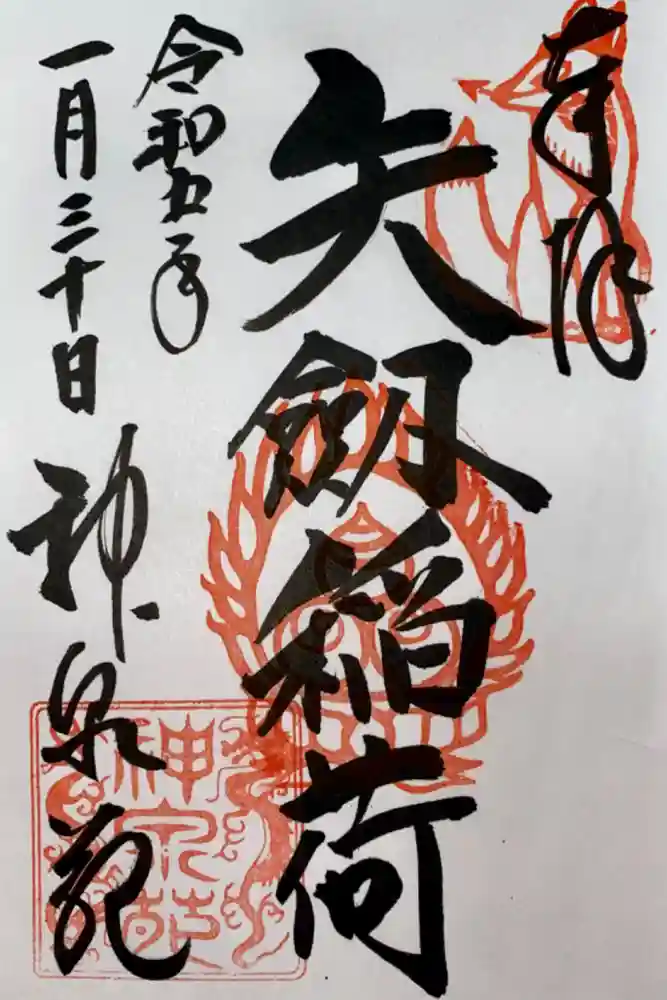 奉拝
矢劔稲荷
令和五年
一月三十日
神泉苑
神泉苑